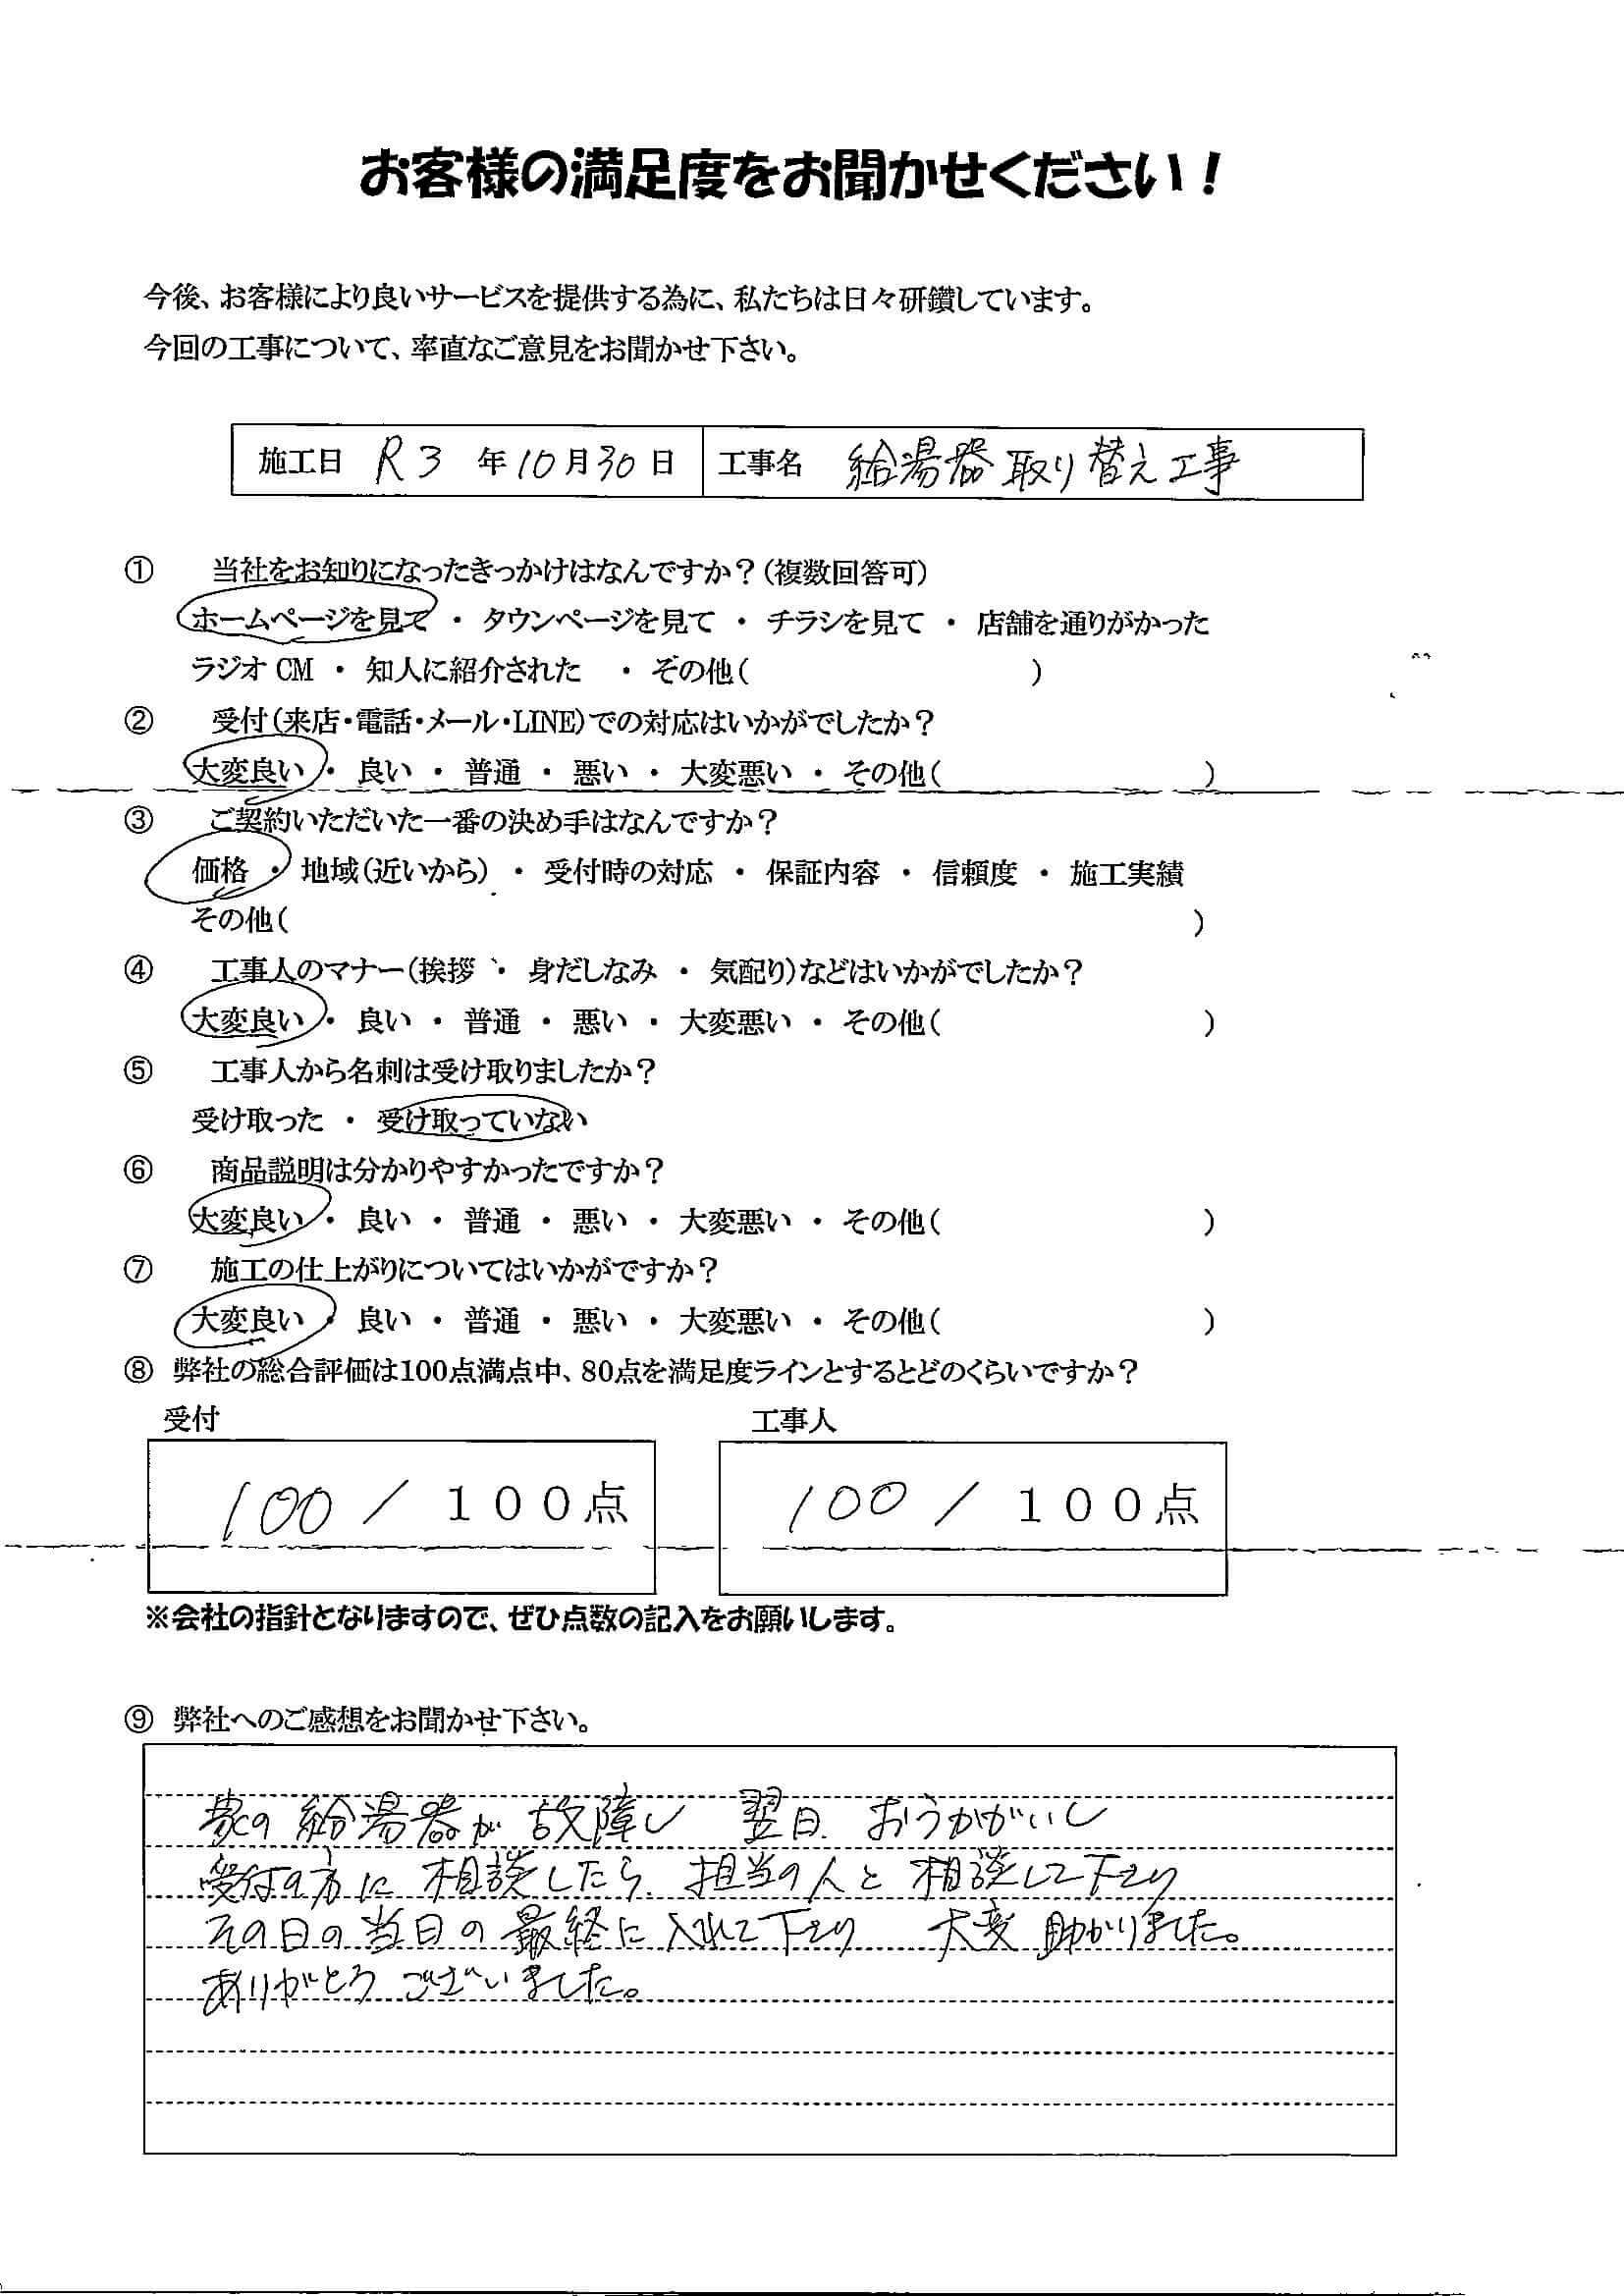 お客様の満足度をお聞かせください！
今後、お客様により良いサービスを提供する為に、私たちは日々研鑽しています。
今回の工事について、率直なご意見をお聞かせ下さい。
施工日 R3 年 10 月 30 日 工事名 給湯器取り替え工事
① 当社をお知りになったきっかけはなんですか？（複数回答可）
ホームページを見て ・ タウンページを見て ・ チラシを見て ・ 店舗を通りがかった
ラジオCM ・ 知人に紹介された ・ その他（ ）
② 受付（来店・電話・メール・LINE）での対応はいかがでしたか？
大変良い ・ 良い ・ 普通 ・ 悪い ・ 大変悪い ・ その他（ ）
③ ご契約いただいた一番の決め手はなんですか？
価格 ・ 地域（近いから） ・ 受付時の対応 ・ 保証内容 ・ 信頼度 ・ 施工実績
その他（ ）
④ 工事人のマナー（挨拶 ・ 身だしなみ ・ 気配り）などはいかがでしたか？
大変良い ・ 良い ・ 普通 ・ 悪い ・ 大変悪い ・ その他（ ）
⑤ 工事人から名刺は受け取りましたか？
受け取った ・ 受け取っていない
⑥ 商品説明は分かりやすかったですか？
大変良い ・ 良い ・ 普通 ・ 悪い ・ 大変悪い ・ その他（ ）
⑦ 施工の仕上がりについてはいかがですか？
大変良い ・ 良い ・ 普通 ・ 悪い ・ 大変悪い ・ その他（ ）
⑧ 弊社の総合評価は100点満点中、80点を満足度ラインとするとどのくらいですか？
受付 工事人
100 ／ １００点 100 ／ １００点
※会社の指針となりますので、ぜひ点数の記入をお願いします。
⑨ 弊社へのご感想をお聞かせ下さい。
の給湯器が故障し 翌日、おうかがいし
受付の方に相談したら、担当の人と相談して下さり
その日の当日の最終に入れて下さり 大変助かりました。
ありがとうございました。